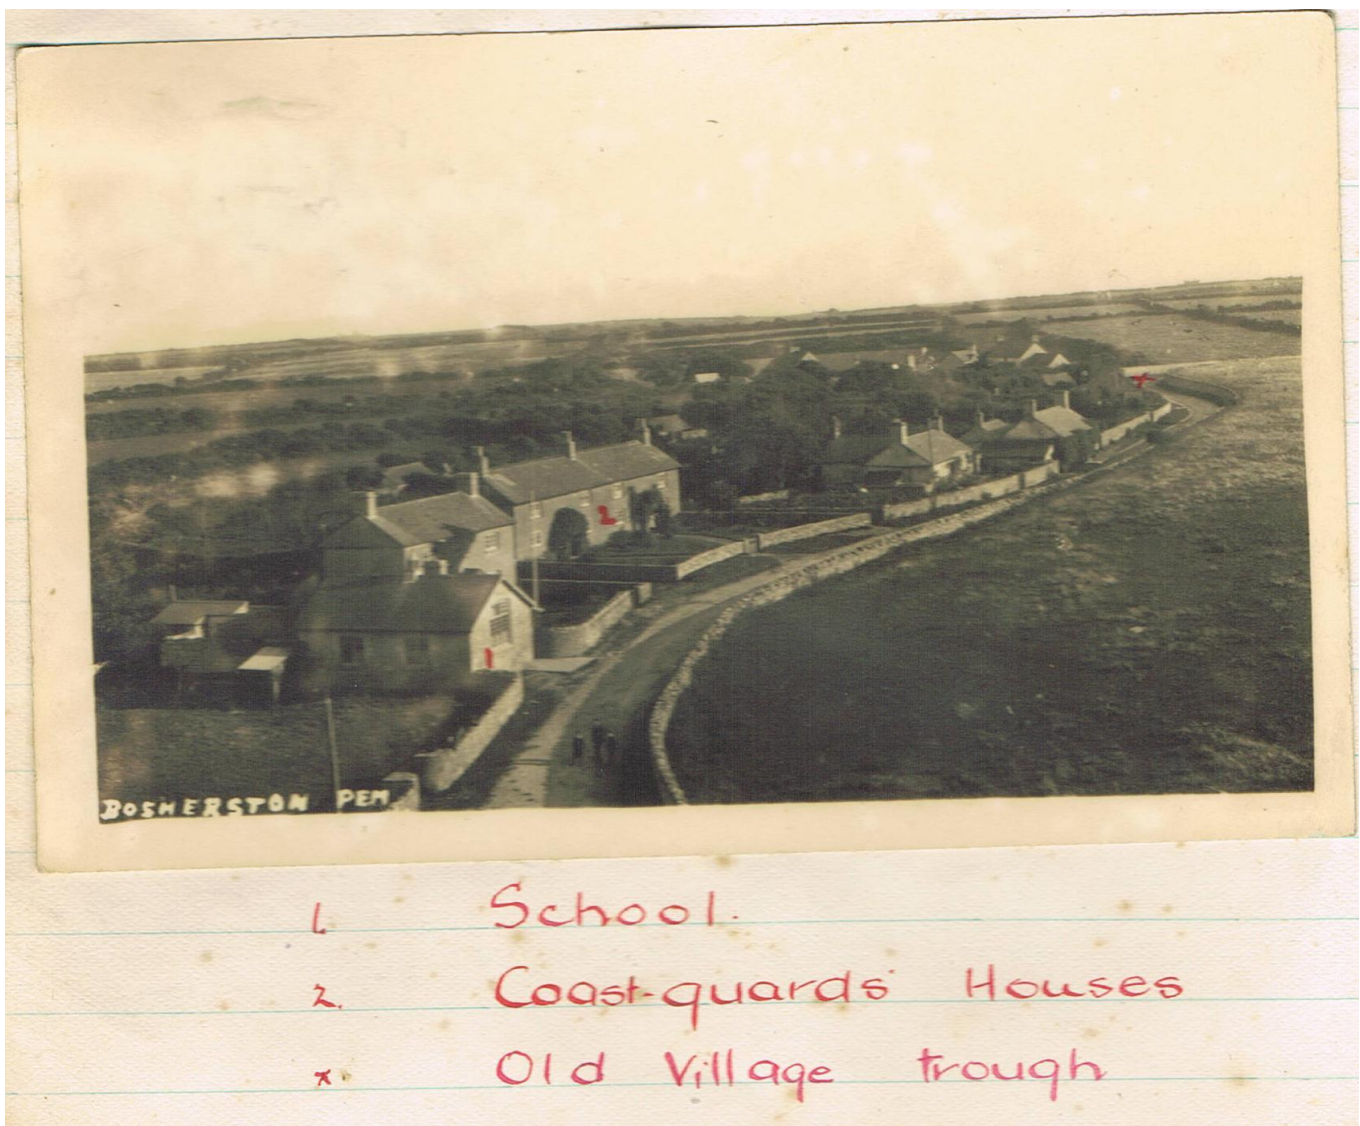 2
1
BOSHERSTON PEM
1. School.
2. Coast-guards' Houses
x Old Village trough